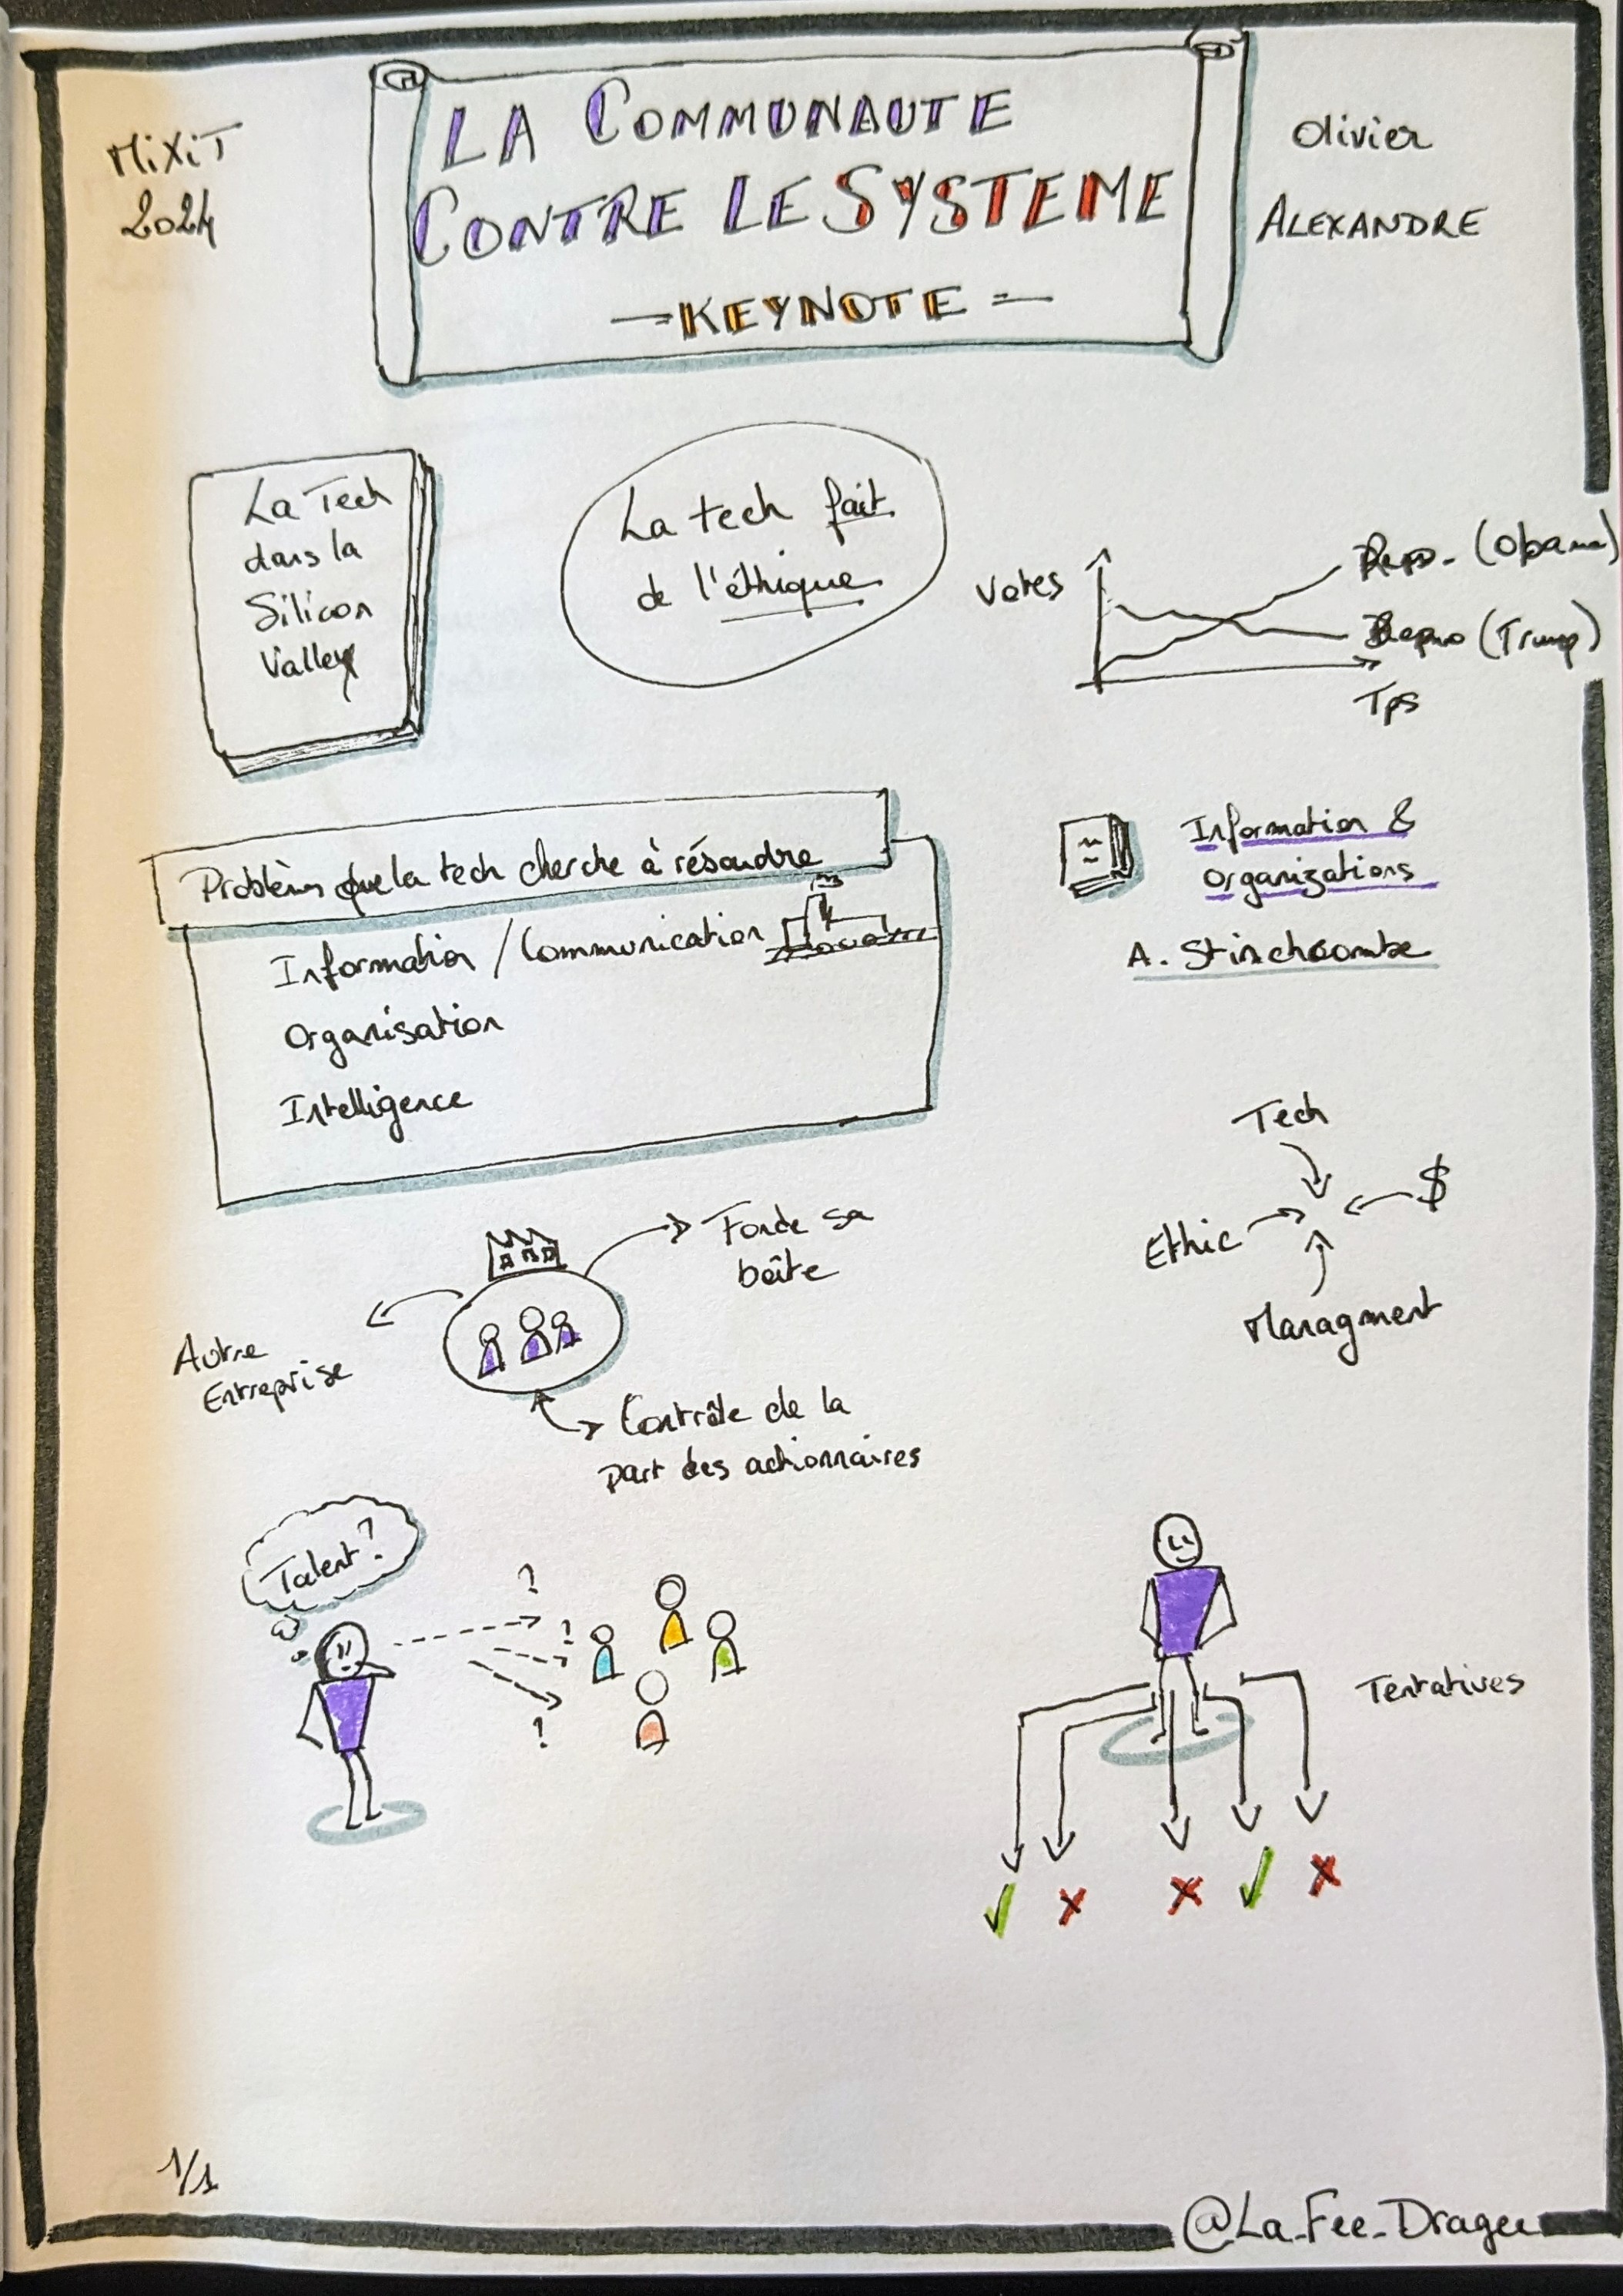 MiXiT
2024
LA COMMUNAUTE
CONTRE LE SYSTEME
KEYNOTE
Olivier
ALEXANDRE
La Tech
dans la
Silicon
Valley
La tech fait
de l'éthique
Votes
(Obama)
(Trump)
Tps
Problèmes que la tech cherche à résoudre
Information / Communication
Organisation
Intelligence
Information &
Organizations
A. Stinchcombe
Tech
$
Ethic
Managment
Fonde sa
boîte
Autre
Entreprise
Contrôle de la
part des actionnaires
Talent?
?
?
?
Tentatives
1/1
@La_Fee_Dragee